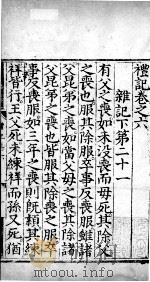 禮記卷之六
雜記下第二十一
有父之喪如未沒喪而母死其除父
之喪也服其除服卒事反喪服雖諸
父昆弟之喪如當父母之喪其除諸
父昆弟之喪也皆服其除喪之服卒
事反喪服如三年之喪則既顈其練
祥皆行王父死未練祥而孫又死猶
mtoou.info mtoou.info